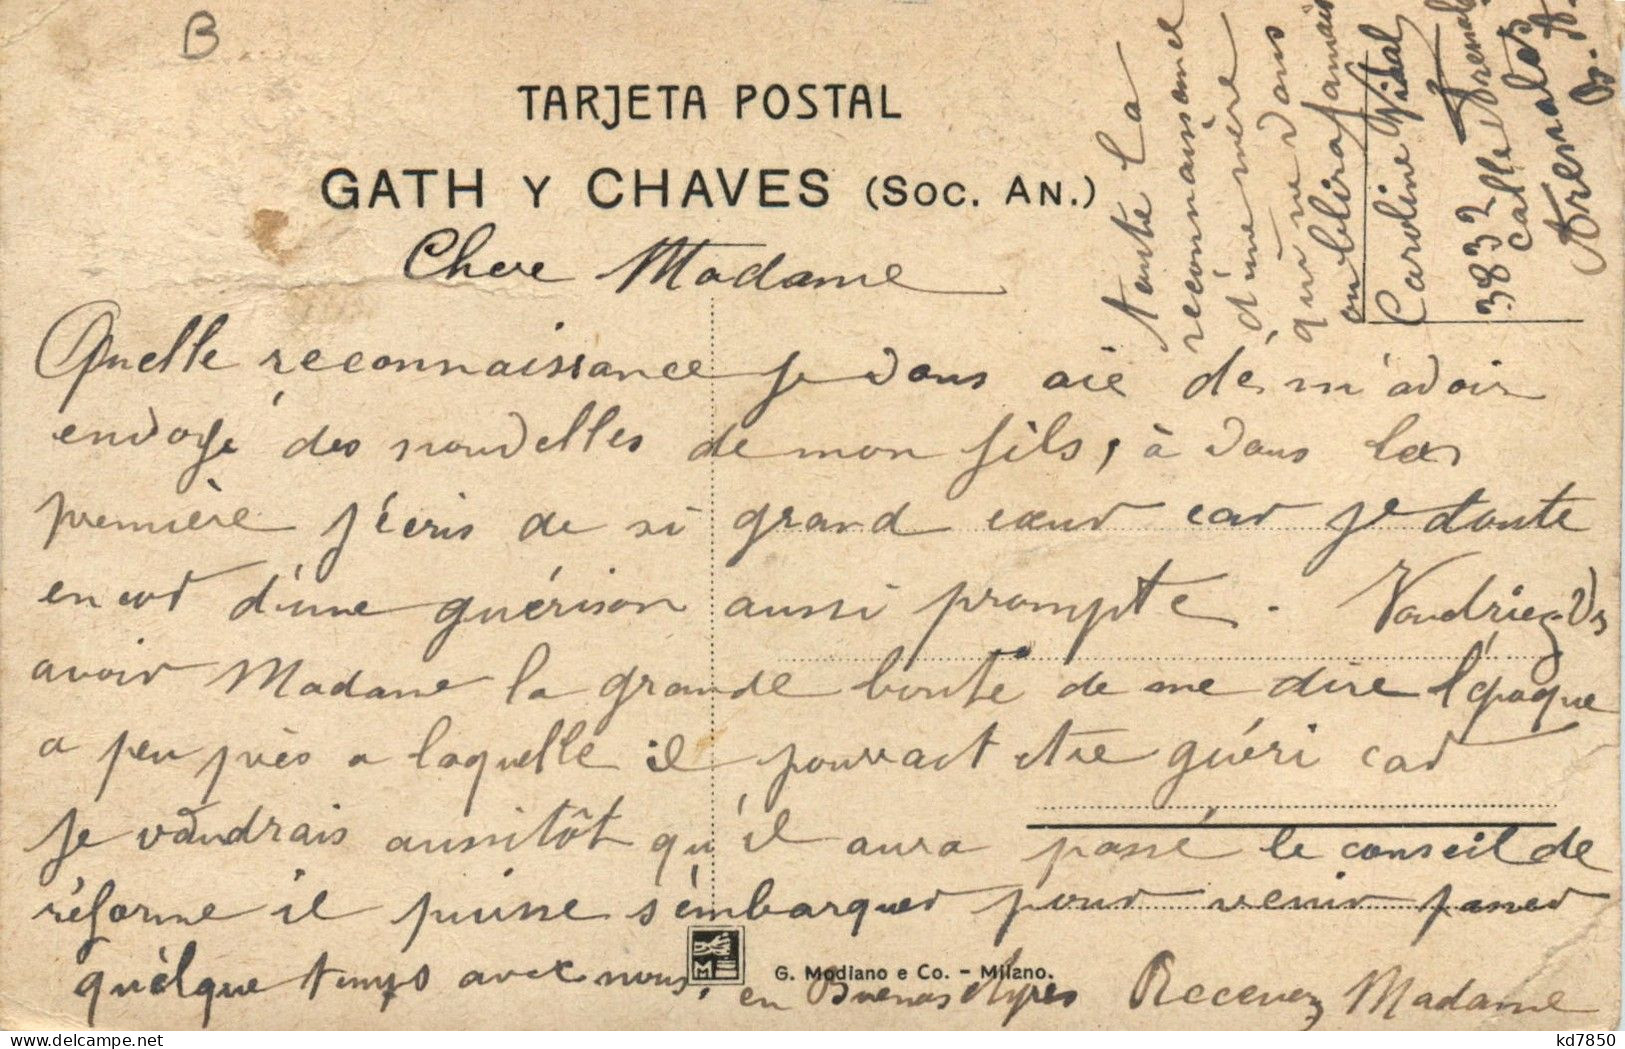 B
TARJETA POSTAL
GATH Y CHAVES (Soc. An.)
Chere Madame
Quelle reconnaissance je vous aie dé m'avoir
envoyé des nouvelles de mon fils, à vous la
première j'écris de si grand cœur car je doute
encor d'une guérison aussi prompte. Voudriez Vs
avoir Madame la grande bonté de me dire l'époque
a peu près a laquelle il pourrait etre guéri car
je voudrais aussitôt qu'il aura passé le conseil de
réforme il puisse s'embarquer pour venir passer
quelque temps avec nous.
en Buenos Ayres Recevez Madame
M
G. Modiano e Co. - Milano.
toute la
reconnaissance
d'une mère
qui ne vous
oublira jamais
Caroline Vidal
3832 calle
calle
Aresnales
B.
kd7850